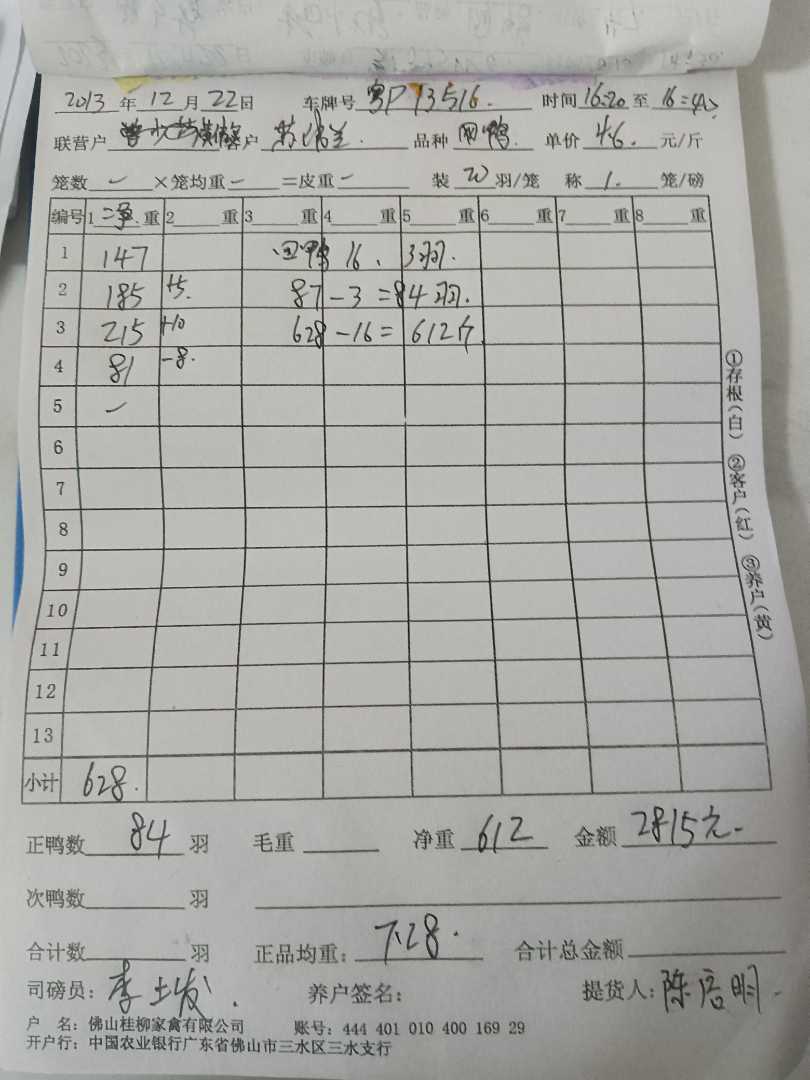 2013年12月22日 车牌号 粤P13516. 时间16:20至16:40
联营户 客户 品种 单价4.6.元/斤
笼数 一 ×笼均重 一 =皮重 一 装20羽/笼 称1.笼/磅
编号 1净重 2重 3重 4重 5重 6重 7重 8重
1 147 鸭 16、3羽.
2 185 +5. 87-3=84羽.
3 215 +10 628-16=612斤
4 81 -8.
5 一
6
7
8
9
10
11
12
13
小计 628.
正鸭数84羽 毛重 净重612 金额2815元
次鸭数羽
合计数羽 正品均重:7.28. 合计总金额
司磅员:李土发. 养户签名: 提货人:陈启明
户 名:佛山桂柳家禽有限公司 账号:444 401 010 400 169 29
开户行:中国农业银行广东省佛山市三水区三水支行
①存根(白) ②客户(红) ③养户(黄)